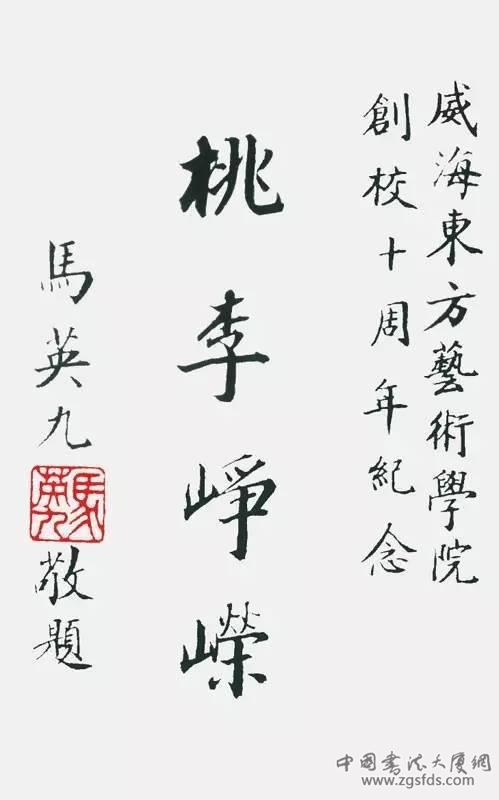 威海東方藝術學院
創校十周年紀念
桃李崢嶸
馬英九
馬英九
敬題
中國書法大厦網
www.zgsfds.com